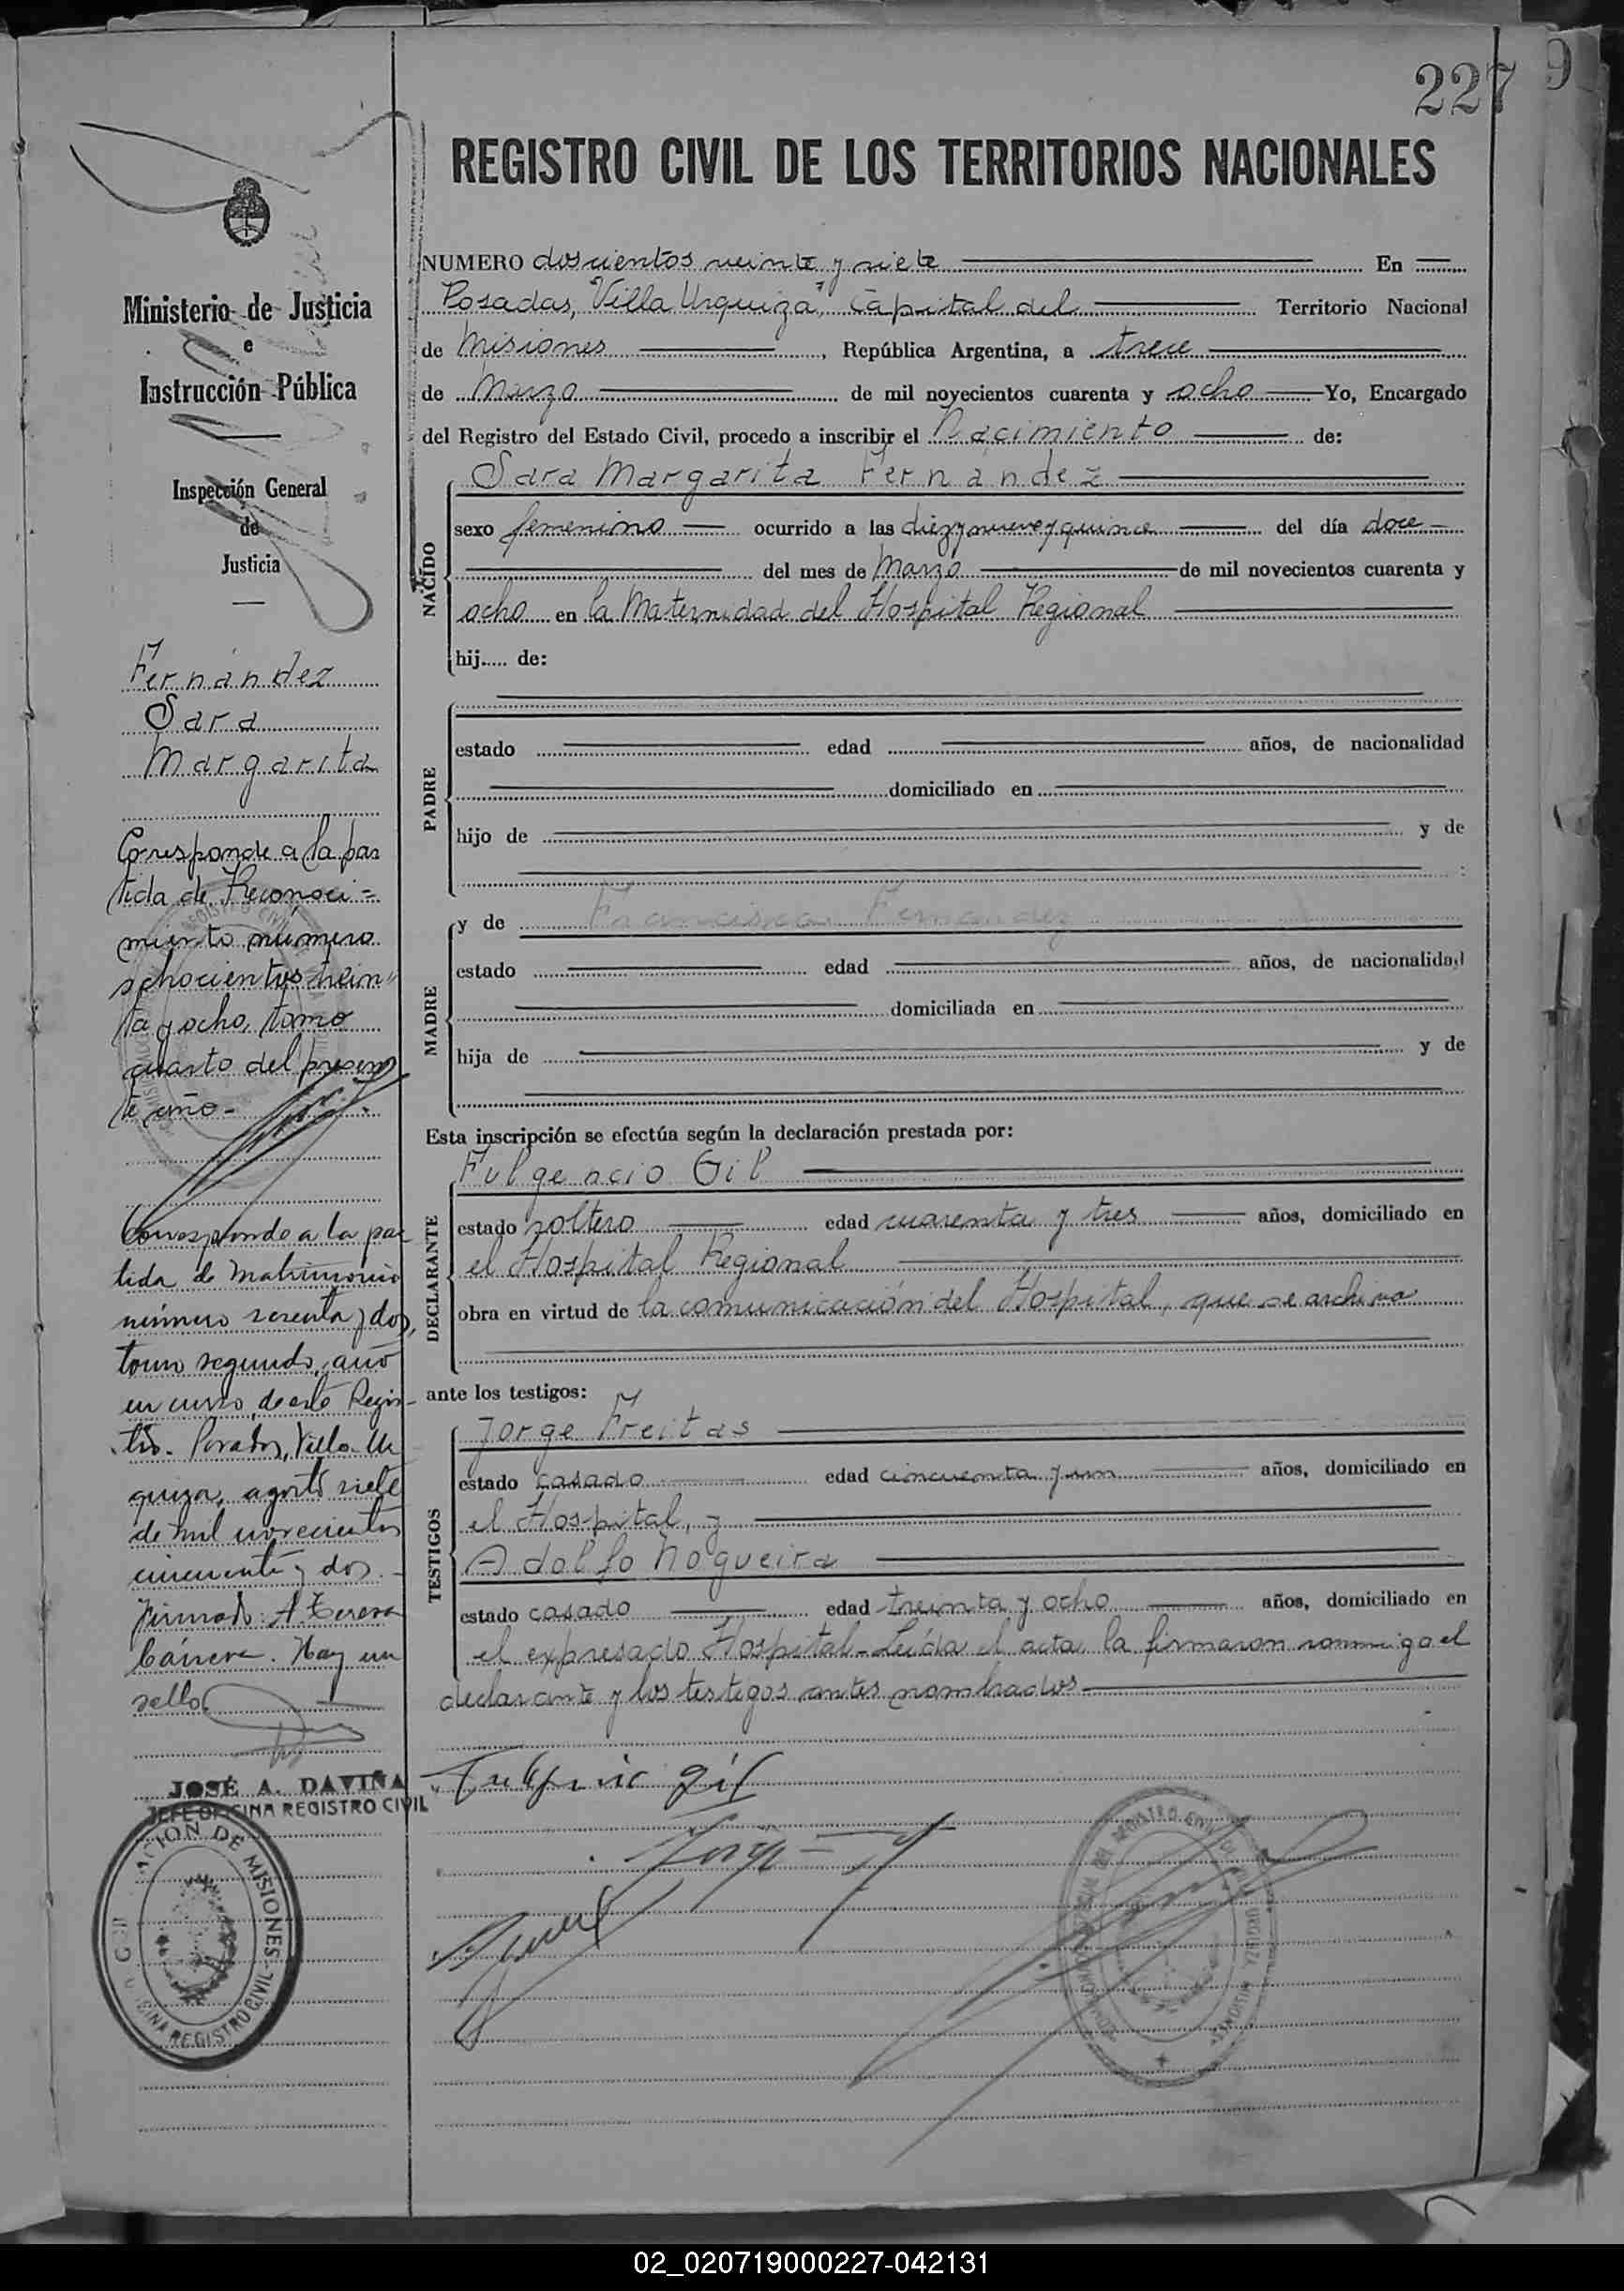 227
9
REGISTRO CIVIL DE LOS TERRITORIOS NACIONALES
Ministerio de Justicia
e
Instrucción Pública
Inspección General
de
Justicia
Fernández
Sara
Margarita
Corresponde a la par
tida de Reconoci=
miento numero
ochocientos trein"
ta y ocho, tomo
cuarto del presen
te año-
Corresponde a la par
tida de Matrimonio
número sesenta y dos,
tomo segundo, año
en curso, de este Regis-
tro. Posadas, Villa Ur
quiza, agosto siete
de mil novecientos
cincuenta y dos.-
Firmado: A. Teresa
Cánceva. Hay un
sello
JOSÉ A. DAVIÑA
JEFE OFICINA REGISTRO CIVIL
ACION DE MISIONES
OFICINA REGISTRO CIVIL
NUMERO doscientos veinte y siete En
Posadas, "Villa Urquiza", Capital del Territorio Nacional
de Misiones, República Argentina, a trece
de Marzo de mil novecientos cuarenta y ocho Yo, Encargado
del Registro del Estado Civil, procedo a inscribir el Nacimiento de:
NACIDO
Sara Margarita Fernández
sexo femenino ocurrido a las diez y nueve y quince del día doce
del mes de Marzo de mil novecientos cuarenta y
ocho en la Maternidad del Hospital Regional
hij..... de:
PADRE
estado edad años, de nacionalidad
domiciliado en
hijo de y de
MADRE
y de Francisca Fernández
estado edad años, de nacionalidad
domiciliada en
hija de y de
Esta inscripción se efectúa según la declaración prestada por:
DECLARANTE
Fulgencio Gil
estado soltero edad cuarenta y tres años, domiciliado en
el Hospital Regional
obra en virtud de la comunicación del Hospital, que se archiva
ante los testigos:
TESTIGOS
Jorge Freitas
estado casado edad cincuenta y un años, domiciliado en
el Hospital, y
Adolfo Nogueira
estado casado edad treinta y ocho años, domiciliado en
el expresado Hospital-Leída el acta la firmaron conmigo el
declarante y los testigos antes nombrados
Fulgencio Gil
02_020719000227-042131